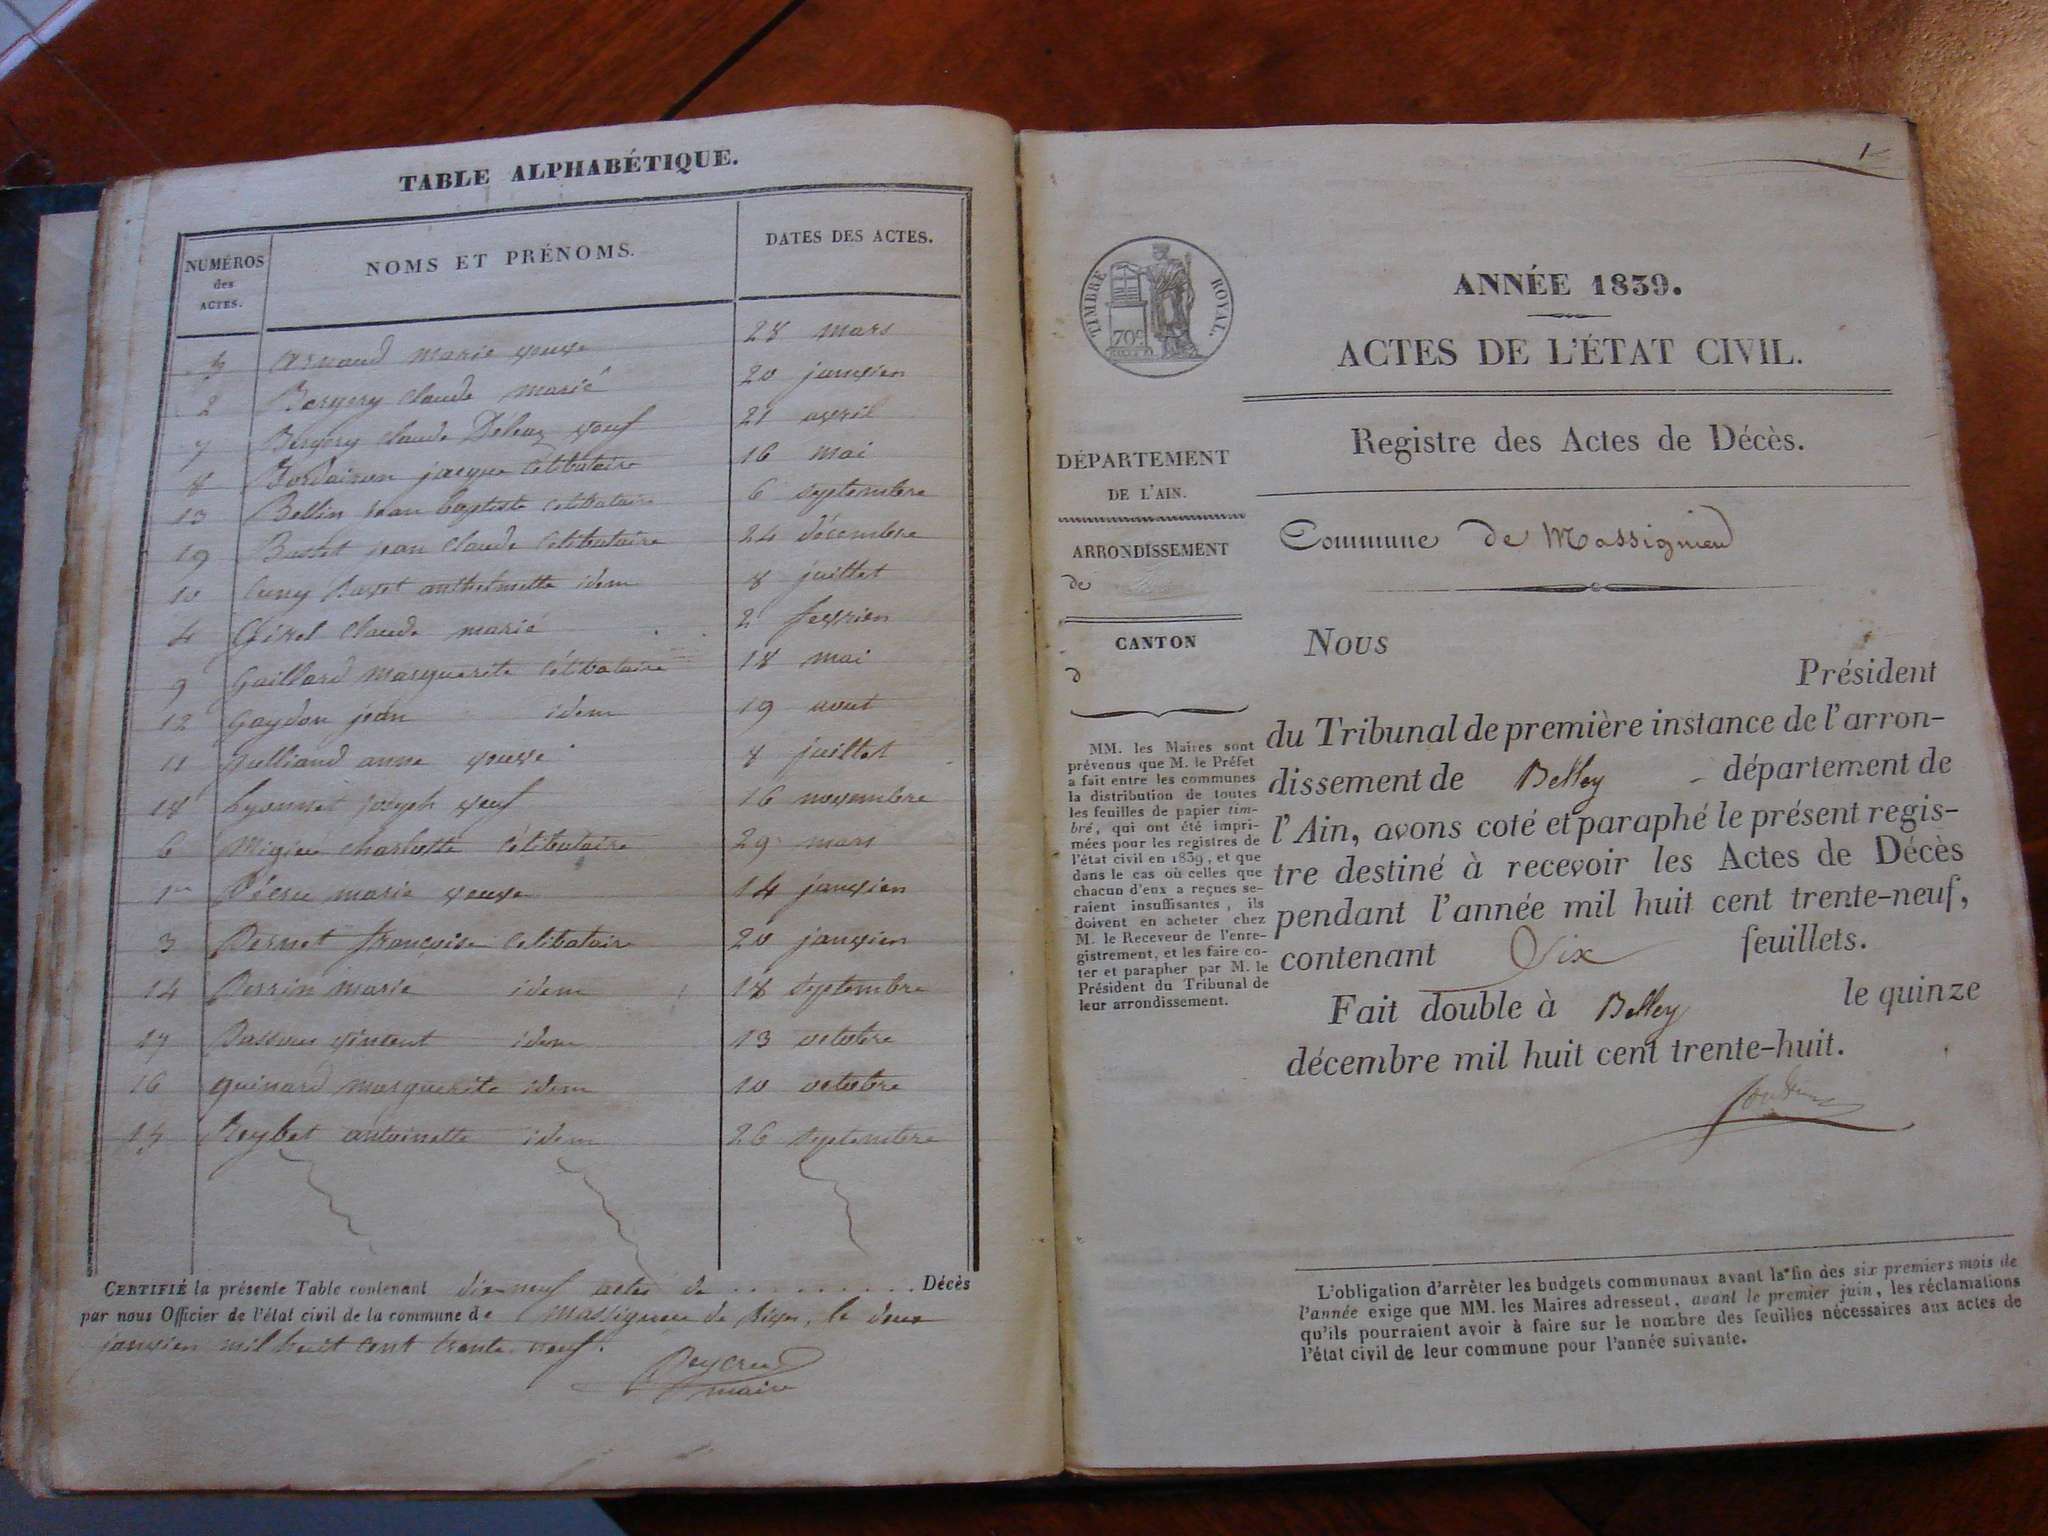 TABLE ALPHABÉTIQUE.
NUMÉROS des ACTES. NOMS ET PRÉNOMS. DATES DES ACTES.
Arnaud marie veuve 28 mars
2 Bergery Claude marié 20 janvier
7 Bergery Claude veuf 21 avril
8 jacque Célibataire 16 mai
13 Bellin jean baptiste célibataire 6 septembre
19 jean Claude Célibataire 24 décembre
10 anthelmette idem 8 juillet
4 Claude marié 2 fevrier
9 Gaillard Marguerite Célibataire 18 mai
12 Gaydon jean idem 19 aout
11 Julliand anne veuve 8 juillet
18 Lyonnet joseph veuf 16 novembre
6 Charlotte Célibataire 29 mars
1er marie veuve 14 janvier
3 Pernet françoise Celibatair 20 janvier
14 Perrin marie idem 18 Septembre
17 vincent idem 13 octobre
16 quinard marguerite idem 10 octobre
Reybet antoinette idem 26 septembre
CERTIFIÉ la présente Table contenant dix neuf actes de . . . . . . . . . Décès
par nous Officier de l'état civil de la commune de Massignieu de Rives, le deux
janvier mil huit cent trente neuf.
maire
1
TIMBRE ROYAL.
70c
ANNÉE 1839.
ACTES DE L'ÉTAT CIVIL.
Registre des Actes de Décès.
DÉPARTEMENT
DE L'AIN.
ARRONDISSEMENT
de
CANTON
d
MM. les Maires sont
prévenus que M. le Préfet
a fait entre les communes
la distribution de toutes
les feuilles de papier tim-
bré, qui ont été impri-
mées pour les registres de
l'état civil en 1839, et que
dans le cas où celles que
chacun d'eux a reçues se-
raient insuffisantes, ils
doivent en acheter chez
M. le Receveur de l'enre-
gistrement, et les faire co-
ter et parapher par M. le
Président du Tribunal de
leur arrondissement.
Commune de Massignieu
Nous
Président
du Tribunal de première instance de l'arron-
dissement de Belley département de
l'Ain, avons coté et paraphé le présent regis-
tre destiné à recevoir les Actes de Décès
pendant l'année mil huit cent trente-neuf,
contenant Six feuillets.
Fait double à Belley le quinze
décembre mil huit cent trente-huit.
L'obligation d'arrêter les budgets communaux avant la fin des six premiers mois de
l'année exige que MM. les Maires adressent, avant le premier juin, les réclamations
qu'ils pourraient avoir à faire sur le nombre des feuilles nécessaires aux actes de
l'état civil de leur commune pour l'année suivante.